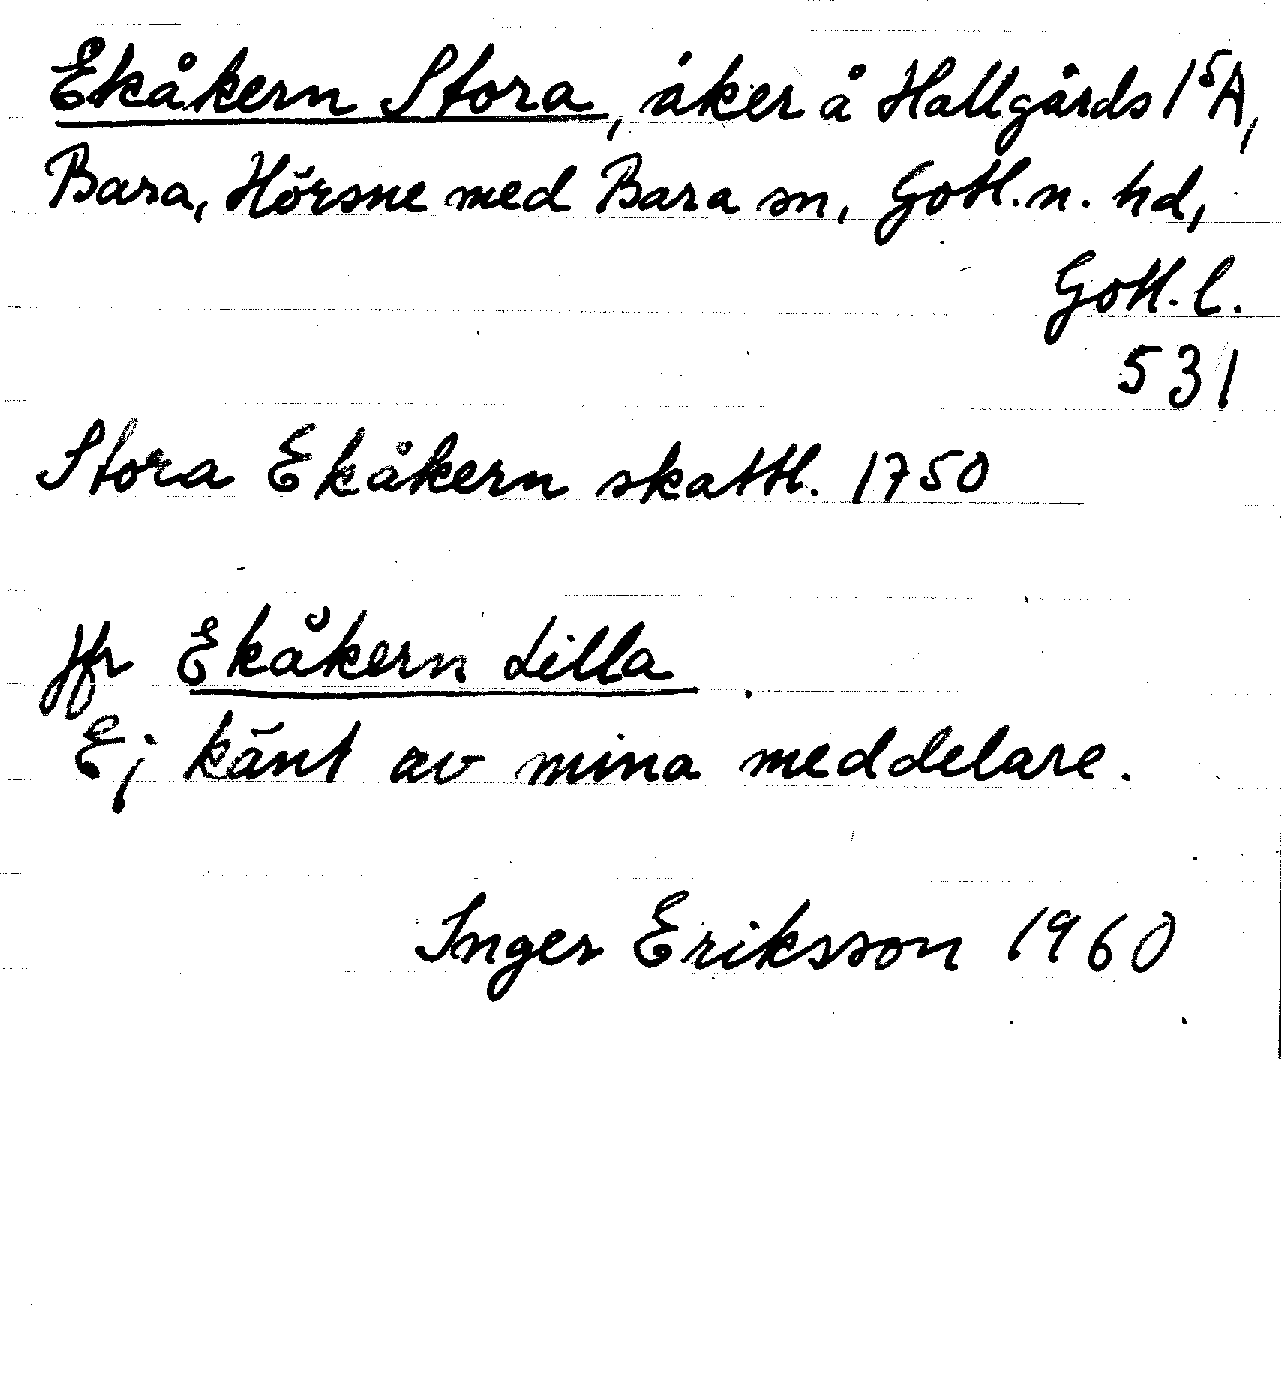 Ekåkern Stora, åker å Hallgårds 1⁵A,
Bara, Hörsne med Bara sn, Gotl. n. hd,
Gotl. l.
531
Stora Ekåkern skattl. 1750
jfr Ekåkern Lilla
Ej känt av mina meddelare.
Inger Eriksson 1960